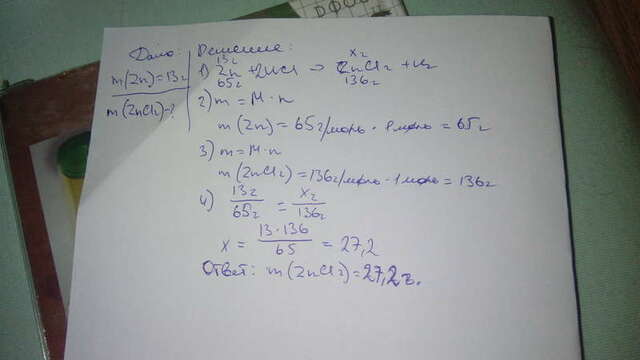 Дано:
m(Zn)=13г
m(ZnCl₂)-?
Решение:
13г xг
1) Zn + 2HCl → ZnCl₂ + H₂
65г 136г
2) m = M · n
m(Zn) = 65г/моль · 1моль = 65г
3) m = M · n
m(ZnCl₂) = 136г/моль · 1моль = 136г
4) 13г/65г = xг/136г
x = 13 · 136/65 = 27,2
Ответ: m(ZnCl₂) = 27,2г.